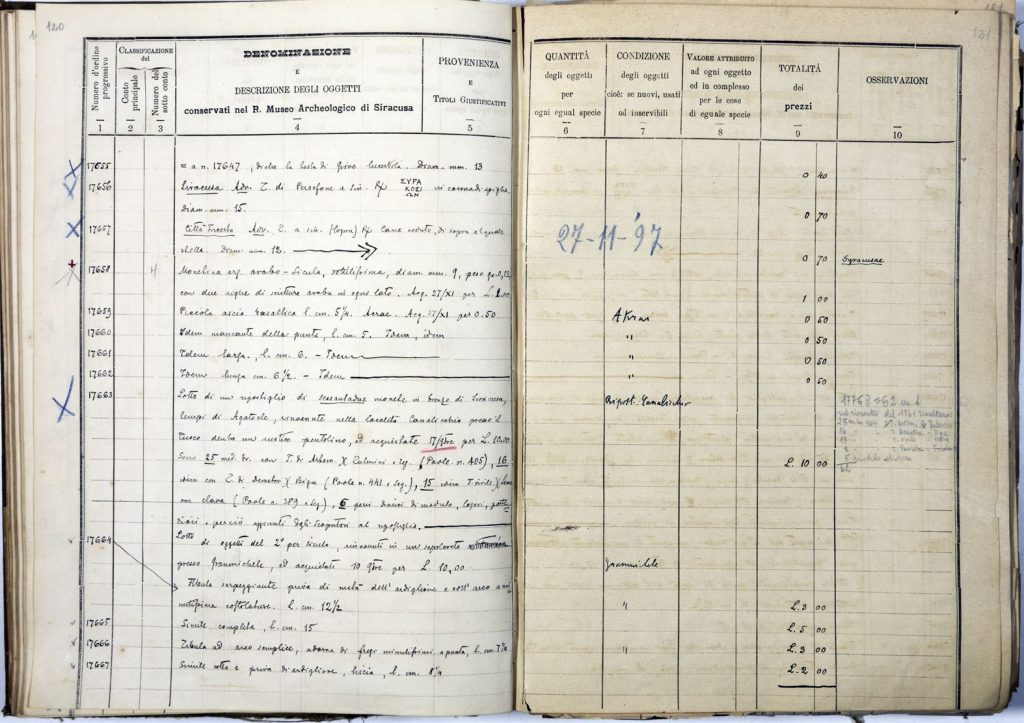 120
121
Numero d'ordine progressivo
CLASSIFICAZIONE del
Conto principale
Numero del sotto conto
DENOMINAZIONE
E
DESCRIZIONE DEGLI OGGETTI
conservati nel R. Museo Archeologico di Siracusa
PROVENIENZA
E
TITOLI GIUSTIFICATIVI
QUANTITÀ
degli oggetti
per
ogni egual specie
CONDIZIONE
degli oggetti
cioè: se nuovi, usati
od inservibili
VALORE ATTRIBUITO
ad ogni oggetto
ed in complesso
per le cose
di eguale specie
TOTALITÀ
dei
prezzi
OSSERVAZIONI
1 2 3 4 5 6 7 8 9 10
17655 = a n. 17647; dietro la testa di Giove lucertola. Diam. mm. 13 0 40
17656 Siracusa Adv. T. di Persefone a sin. Rx ΣΥΡΑ ΚΟΣΙ ΩΝ in corona di spighe
Diam. mm. 15. 0 70
17657 Città Incerta Adv. T. a sin. (logora) Rx Cane seduto, di sopra al quale
stella. Diam. mm. 12. 0 70 Syracusae
27-11-97
17658 4 Monetina arg. arabo-Sicula, sottilissima, diam. mm. 9, peso gr. 0,13,
con due righe di scrittura araba in ogni lato. Acq. 27/XI per L. 1.00 1 00
17659 Piccola ascia basaltica l. cm. 5¼. Acrae. Acq. 27/XI per 0.50 Akrai 0 50
17660 Idem mancante della punta, l. cm. 5. Idem, idem " 0 50
17661 Idem larga, l. cm. 6. - Idem " 0 50
17662 Idem lunga cm. 6½ - Idem 0 50
17663 Lotto di un ripostiglio di sessantadue monete in bronzo di Siracusa,
tempi di Agatocle, rinvenute nella località Canalicchio presso il
Tusco dentro un rustico pentolino, ed acquistate 17/9bre per L. 10.00
Sono 25 med. br. con T. di Athena )( Fulmini e seg. (Poole n. 405), 16
idem con T. di Demetra )( Biga (Poole n. 441 e seg.), 15 idem T. virile )( Leone
con clava (Poole n. 389 e seg.), 6 pezzi di modulo, logori,
e perciò
Ripost. Canalicchio
L. 10 00
17664 Lotto di oggetti del 2° per. siculo, rinvenuti in un sepolcreto
presso Grammichele, ed acquistati 10 9bre per L. 10,00. Grammichele
Fibula serpeggiante priva di metà dell'ardiglione e coll'arco a
costolature. L. cm. 12½ " L. 3 00
17665 Simile completa, l. cm. 15 L. 5 00
17666 Fibula ad arco semplice, adorna di fregi a punta, l. cm. " L. 3 00
17667 Simile rotta e priva di ardiglione, liscia, l. cm. 8¼ L. 2 00